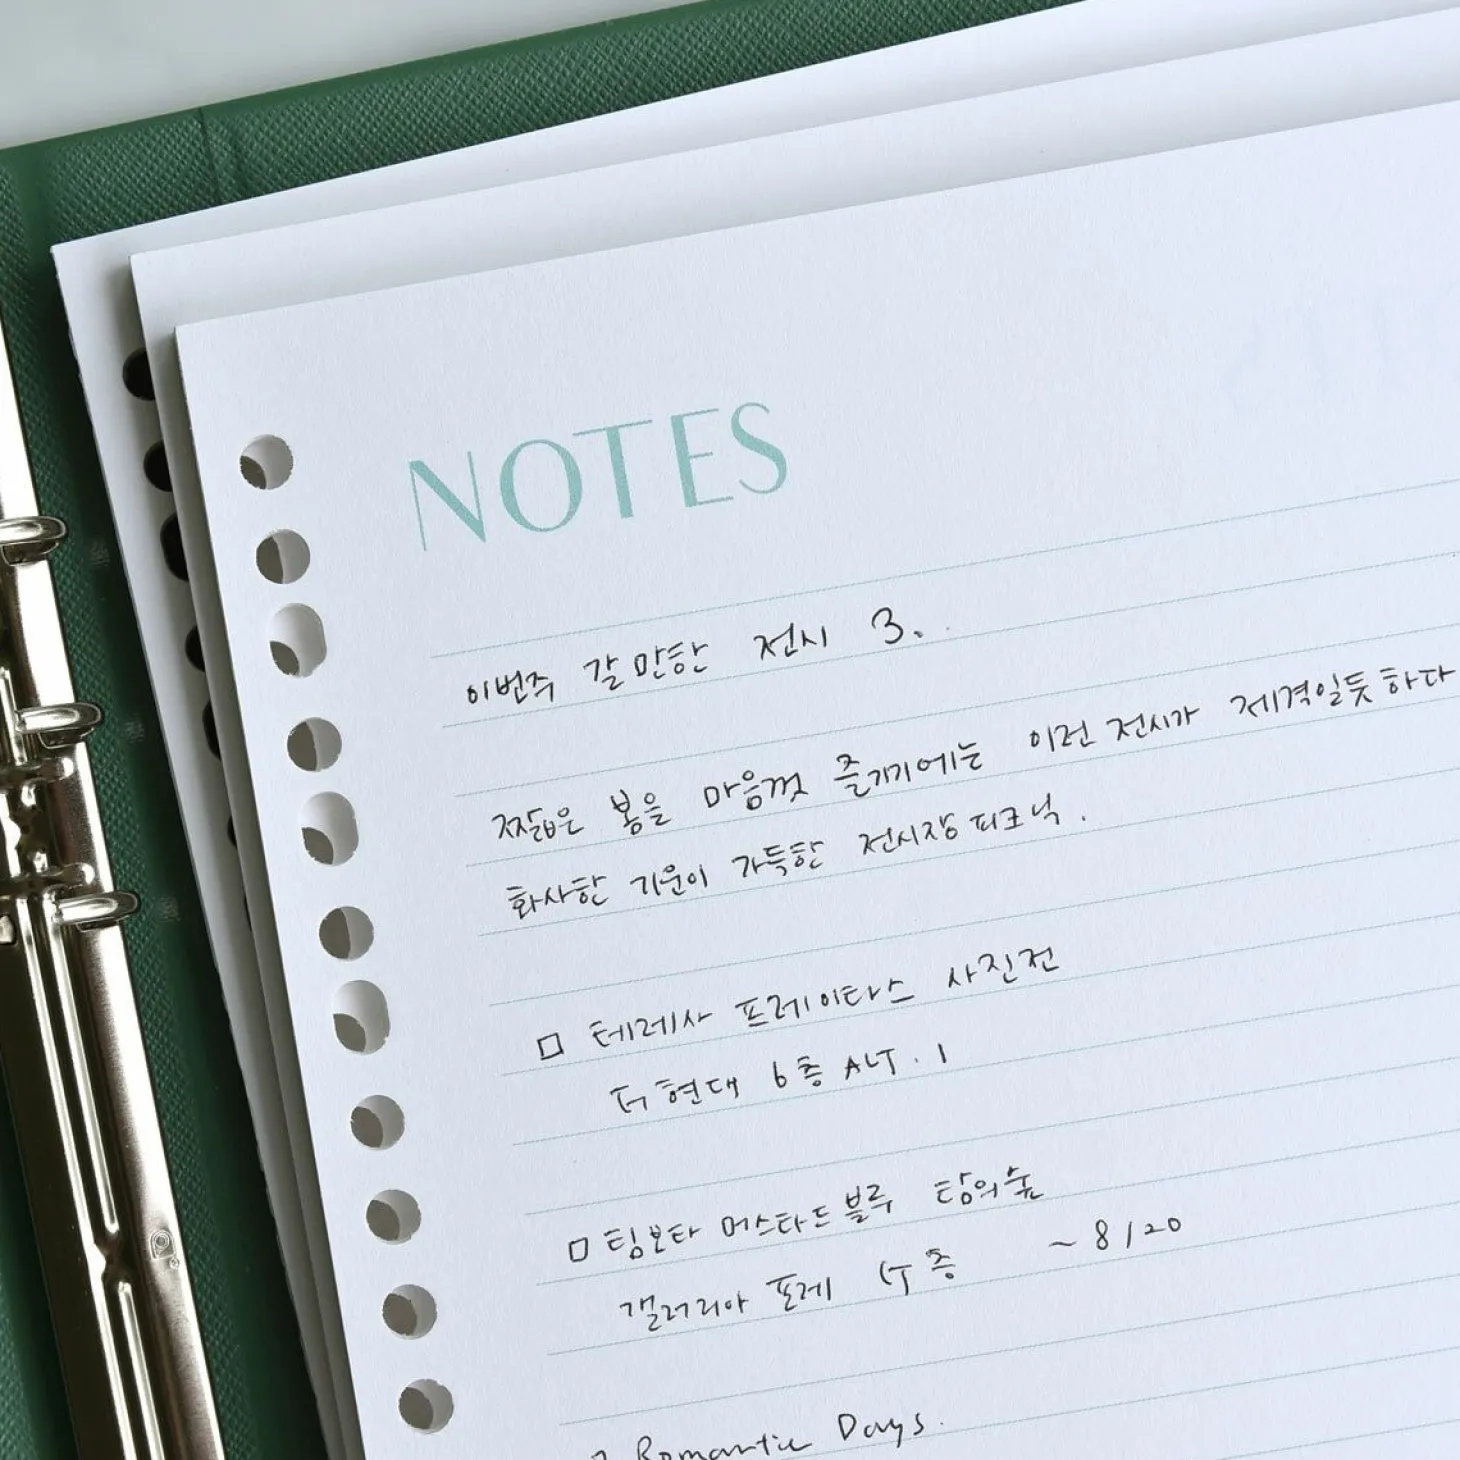 NOTES
이번주 갈만한 전시 3.
짧은 봄을 마음껏 즐기기에는 이런 전시가 제격일듯하다
화사한 기운이 가득한 전시장 피크닉.
□ 테레사 프레이타스 사진전
더현대 6층 ALT. 1
□ 팀보타 머스타드블루 탐의숲
갤러리아 포레 층 ~8/20
Romantic Days.